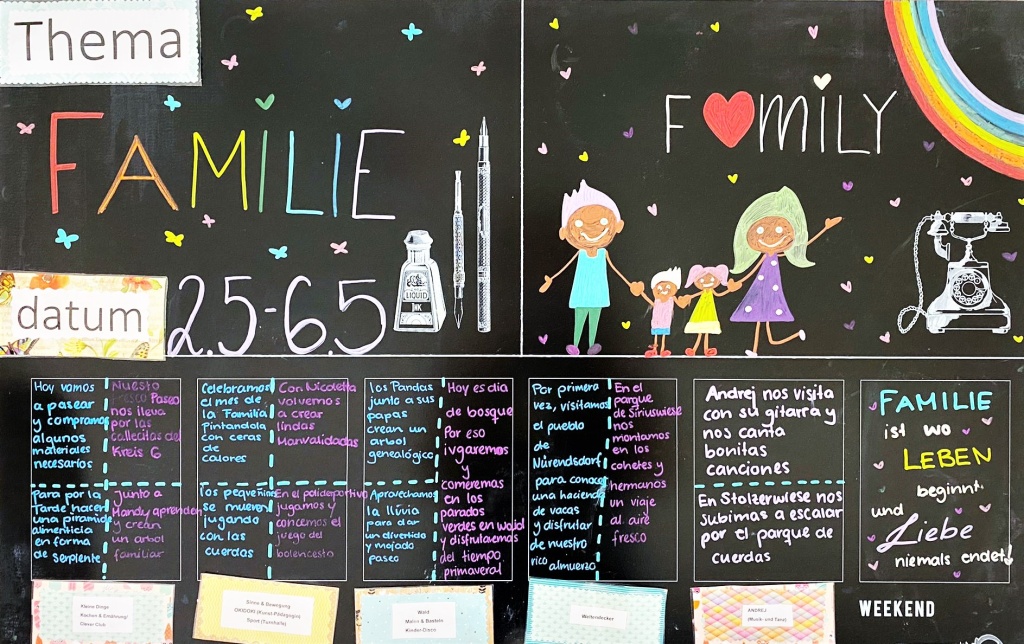 Thema
FAMILIE
datum
2.5-6.5
LIQUID
INK
FAMILY
Hoy vamos
a pasear
y compramos
algunos
materiales
necesarios
Nuesto
fresco Paseo
nos lleva
por las
callecitas del
Kreis 6
Para por la
Tarde hacer
una piramide
alimenticia
en forma
de serpiente
Junto a
Mandy aprenden
y crean
un arbol
familiar
Celebramos
el mes de
la Familia
Pintandola
con ceras
de
calores
Con Nicoletta
volvemos
a crear
lindas
Manualidades
los pequeñines
se mueven
jugando
con las
cuerdas
En el polideportivo
jugamos y
concemos el
juego del
bolencesto
los Pandas
junto a sus
papas
crean un
arbol
genealógico
Aprovechamos
la lluvia
para dar
un divertido
y mojado
paseo
Hoy es dia
de bosque
Por eso
jugaremos
y
comeremas
en los
parados
verdes en wald
y disfrutaemos
del tiempo
primaveral
Por primera
vez, visitamos
el pueblo
de
Nürensdorf
para conocer
una hacienda
de vacas
y disfrutar
de nuestro
rico almuerzo
En el
parque
de Siriuswiese
nos
montamos
en los
cohetes y
hermanos
un viaje
al aire
fresco
Andrej nos visita
con su gitarra y
nos canta
bonitas
canciones
En Stolzerwiese nos
subimas a escalar
por el parque de
cuerdas
FAMILIE
ist wo
LEBEN
beginnt.
und
Liebe
niemals endet!
Kleine Dinge
Kochen & Ernährung!
Clever Club
Sinne & Bewegung
ORIGORI (Kunst-Pädagogin)
Sport (Turnhalle)
Wald
Malen & Basteln
Kinder-Disco
Weiterentdecker
ANDREJ
(Musik- und Tanz)
WEEKEND